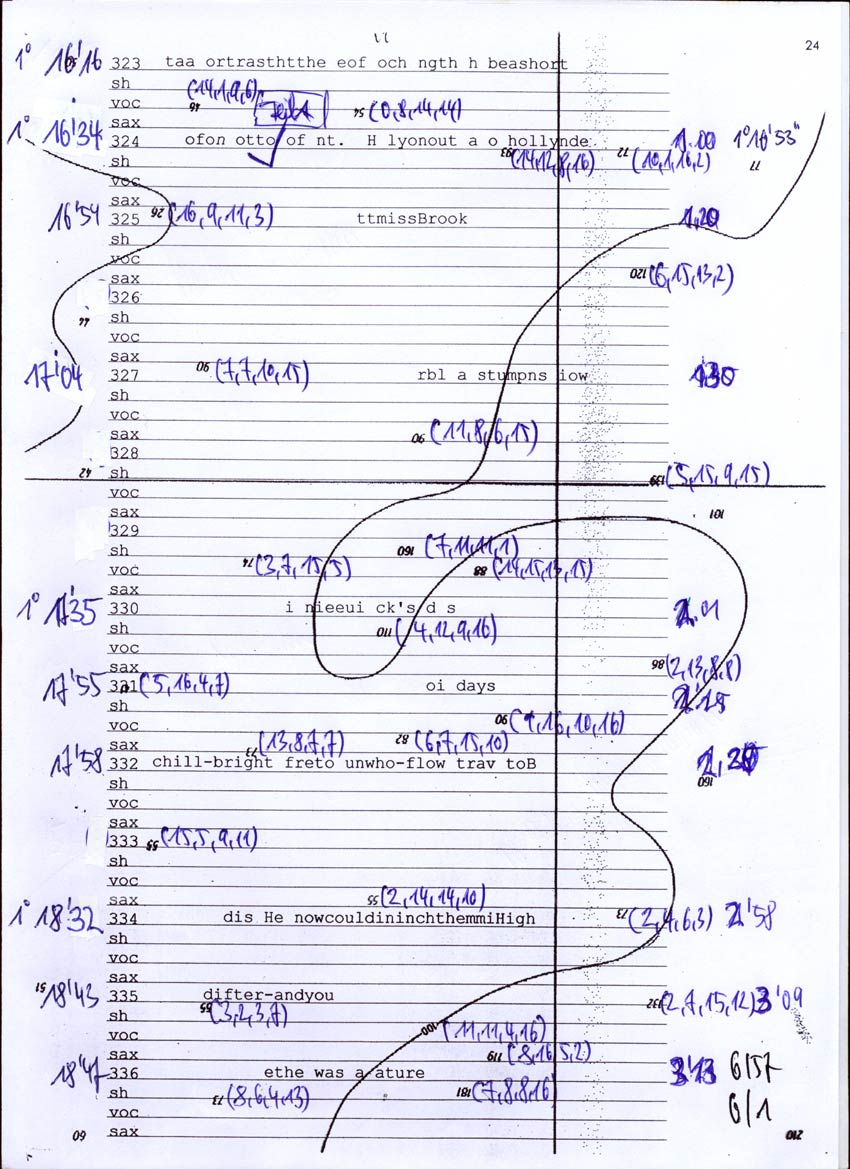 24
1° 16'16 323 taa ortrasthtthe eof och ngth h beashort
sh
(14,1,9,6)
voc 54 (0,8,14,14)
sax
1° 16'34 324 ofon otto of nt. H lyonout a o hollynde 1.00 1°16'53"
sh 93 (14,12,8,16) 72 (10,1,16,2) 77
voc
sax
16'54 325 26 (16,9,11,3) ttmissBrook 1,20
sh
voc
sax 120 (6,15,13,2)
326
sh 44
voc
sax
17'04 327 90 (7,7,10,15) rbl a stumpns iow 130
sh
voc
sax 90 (11,8,6,15)
328
42 sh 139 (5,15,9,15)
voc
sax 101
329
sh 160 (7,11,11,1)
voc 74 (3,7,15,5) 88 (14,15,13,15)
sax
1° 17'35 330 i nieeui ck's d s 2.01
sh 110 (4,12,9,16)
voc
sax 86 (2,13,8,8)
17'55 331 (5,16,4,7) oi days 2'15
sh
voc 90 (9,16,10,16)
sax 73 (13,8,7,7) 82 (6,7,15,10)
17'58 332 chill-bright freto unwho-flow trav toB
sh 160
voc
sax
333 55 (15,5,9,11)
sh
voc
sax 55 (2,14,14,10)
1° 18'32 334 dis He nowcouldininchthemmiHigh 73 (2,4,6,3) 2'58
sh
voc
sax
51 18'43 335 difter-andyou 132 (2,7,15,12) 3'09
sh 55 (3,2,3,7)
voc 100 (11,11,4,16)
sax 119 (8,16,5,2)
18'47 336 ethe was a ature 3'13 6/57
sh 73 (8,6,4,13) 181 (7,8,8,16)
voc 6/1
60 sax 210